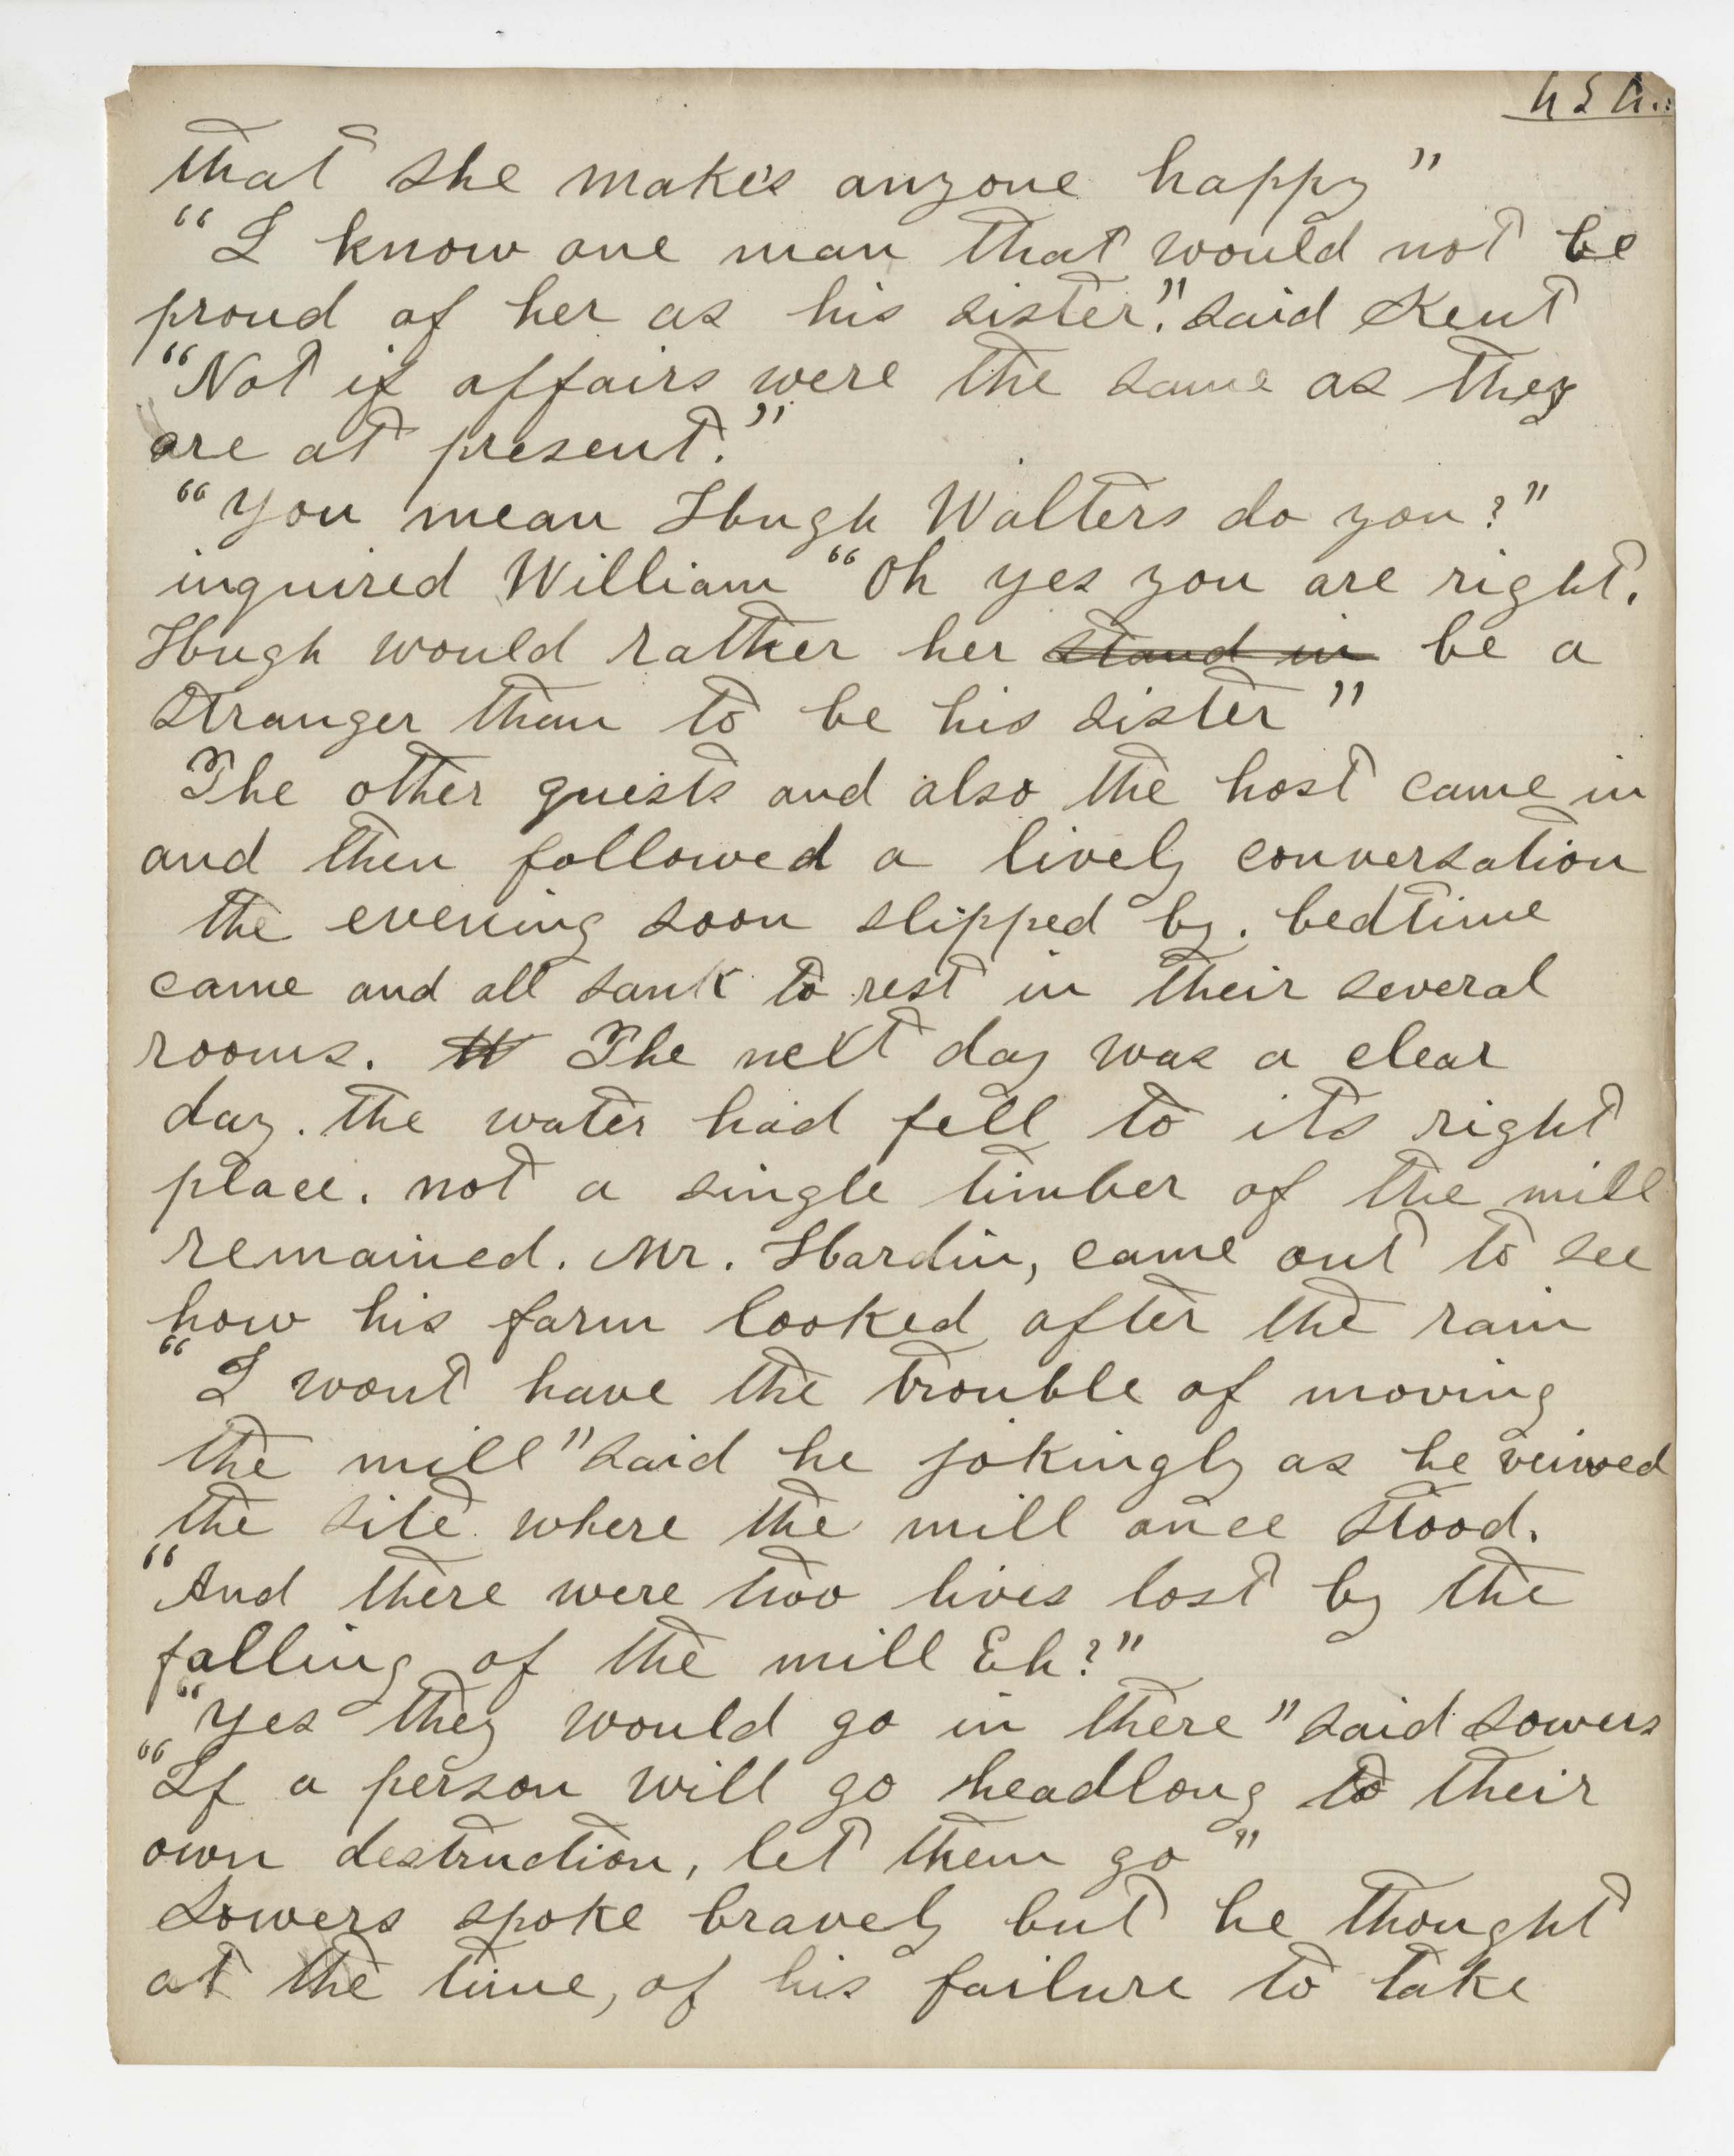 that she makes anyone happy"
"I know one man that would not be
proud of her as his sister." said Kent
"Not if affairs were the same as they
are at present."
"You mean Hugh Walters do you?"
inquired William "Oh yes you are right.
Hugh would rather her stand in be a
stranger than to be his sister"
The other guests and also the host came in
and then followed a lively conversation
the evening soon slipped by. bedtime
came and all sank to rest in their several
rooms. The next day was a clear
day. the water had fell to its right
place. not a single timber of the mill
remained. Mr. Hardin, came out to see
how his farm looked after the rain
"I wont have the trouble of moving
the mill" said he jokingly as he veiwed
the site where the mill once stood.
"And there were two lives lost by the
falling of the mill Eh?"
"Yes they would go in there" said Sowers
"If a person will go headlong to their
own destruction, let them go"
Sowers spoke bravely but he thought
at the time, of his failure to take